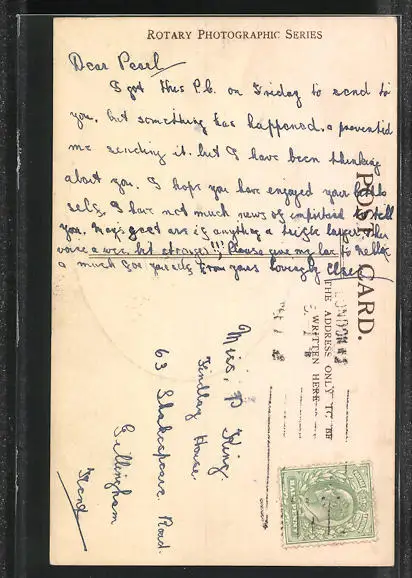 ROTARY PHOTOGRAPHIC SERIES
Dear Pearl
I got this P.C. on Friday to send to
you, but something has happened, & prevented
me sending it. but I have been thinking
about you. I hope you have enjoyed your
selfs, I have not much news of to tell
you, is anything a larger
voice a wee, bit stronger!!! Please give my love to
& much for from yours lovingly
POST CARD.
THE ADDRESS ONLY TO BE
WRITTEN HERE
LONDON
Miss, P King.
Findlay House
63 Shakespeare Road.
Gillingham
Kent